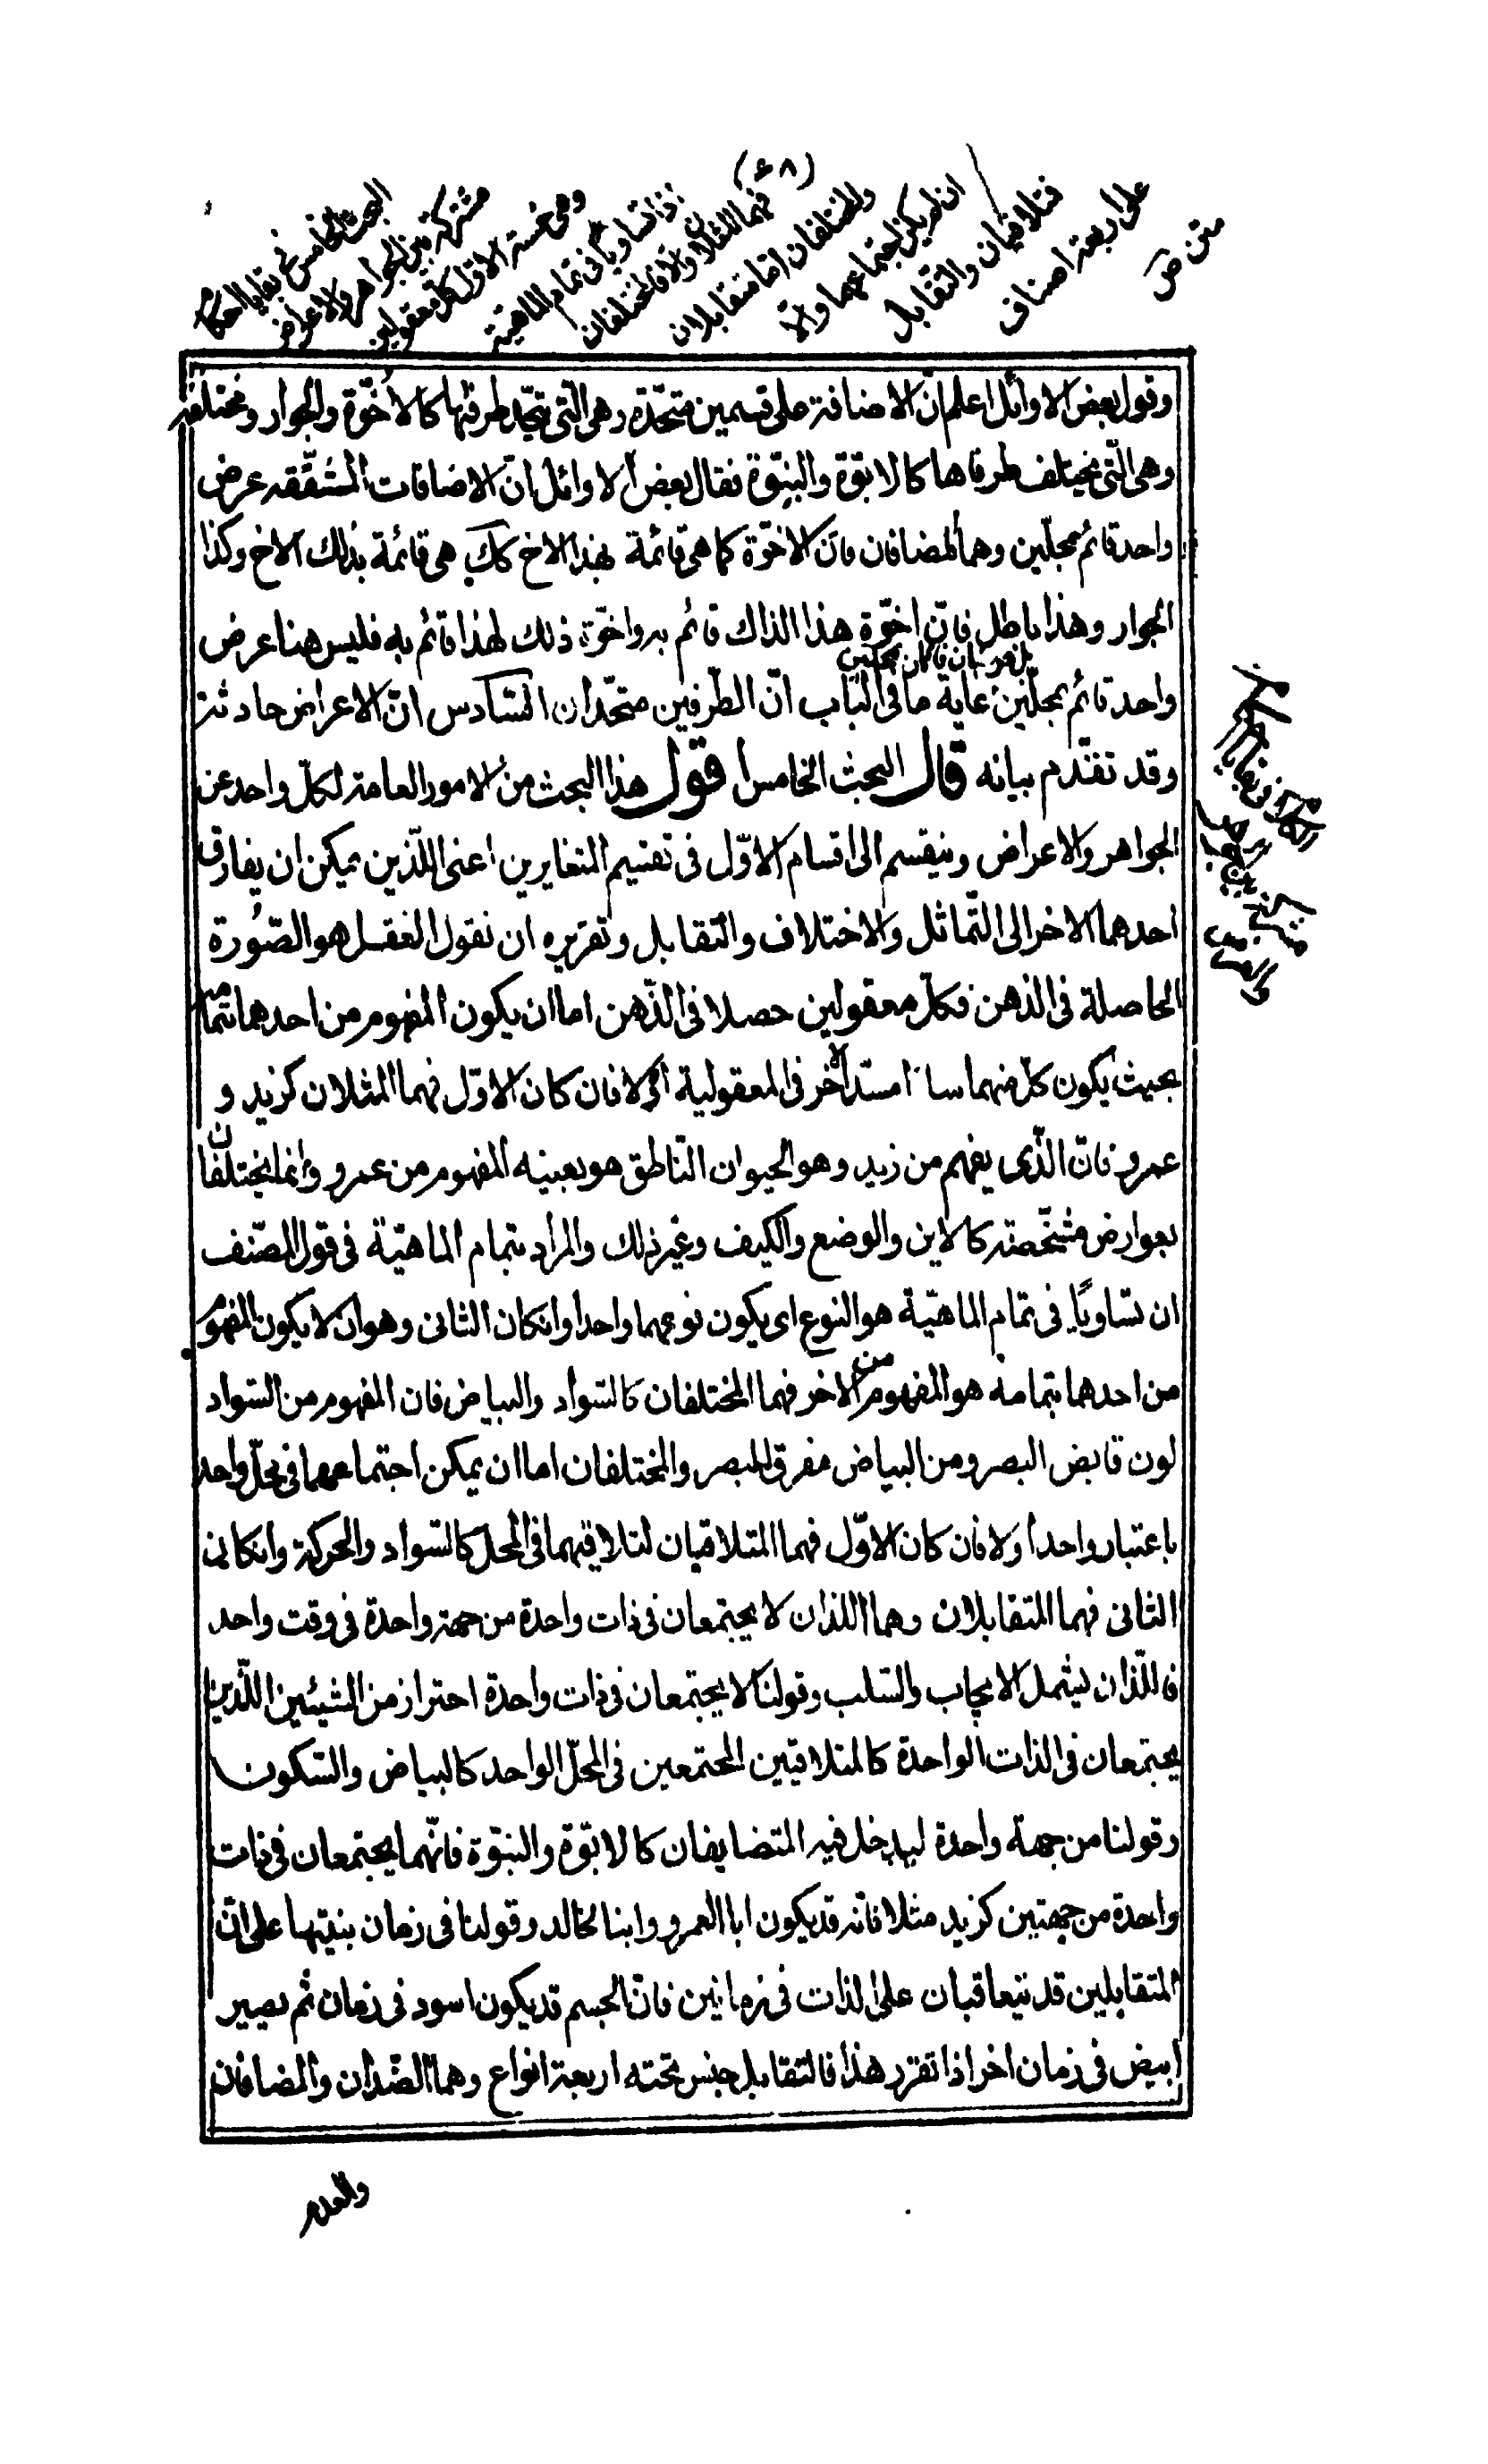 (٦٨)
البحث الخامس فى بقايا احكام
مشتركة بين الجواهر والاعراض
وهى خمسة الاول كل معقولين
اذا تساويا فى تمام الماهية
فهما المثلان والا فالمختلفان
والمختلفان اما متقابلان
ان لم يمكن اجتماعهما والا
فمتلاقيان والتقابل
على اربعة اصناف
متن ص
وقول بعض الاوائل اعلم انّ الاضافة على قسمين متحّدة وهى التى يتحّد طرفيها كالأخوّة والجوار ومختلفة
وهى الّتى يختلف طرفاها كالابوّة والبنوّة فقال بعض الاوائل انّ الاضافات المتّفقه عرض
واحد قائم بمحلّين وهما المضافان فانّ الاخوّة كما هى قائمة بهذا الاخ كك هى قائمة بذلك الاخ وكذا
الجوار وهذا باطل فانّ اخوّة هذا الذاك قائم به واخوّة ذلك لهذا قائم به فليس هنا عرض
بل عرضان قائمان بمحلين
واحد قائم بمحلّين غاية ما فى الباب انّ الطّرفين متحّدان السّادس انّ الاعراض حادثة
وقد تقدّم بيانه قال البحث الخامس اقول هذا البحث من الامور العامة لكلّ واحد عن
الجواهر والاعراض وينقسم الى اقسام الاوّل فى تقسيم المتغايرين اعنى اللّذين يمكن ان يفارق
احدهما الاخر الى التّماثل والاختلاف والتقابل وتقريره ان نقول العقل هو الصّورة
الحاصلة فى الذهن فكلّ معقولين حصلا فى الذّهن اما ان يكون المفهوم من احدهما بتمامه
بحيث يكون كلّ منهما سادا مسدّ الاخر فى المعقولية أو لا فان كان الاوّل فهما المثلان كزيد و
عمرو فانّ الذّى يفهم من زيد وهو الحيوان النّاطق هو بعينه المفهوم من عمرو وانما يختلفان
بعوارض مشخّصة كالاين والوضع والكيف وغير ذلك والمراد بتمام الماهيّة فى قول المصّنف
ان تساويا فى تمام الماهيّة هو النوع اى يكون نوعهما واحدا وانكان الثانى وهو ان لا يكون المفهوم
من احدهما بتمامه هو المفهوم من الاخر فهما المختلفان كالسّواد والبياض فان المفهوم من السّواد
لون قابض البصر ومن البياض مفرق البصر والمختلفان اما ان يمكن اجتماعهما فى محلّ واحد
باعتبار واحد أو لا فان كان الاوّل فهما المتلاقيان لتلاقيهما فى المحل كالسّواد والحركة وانكان
الثانى فهما المتقابلان وهما اللذان لا يجتمعان فى ذات واحدة من جهة واحدة فى وقت واحد
فاللّذان ليشمل الايجاب والسّلب وقولنا لا يجتمعان فى ذات واحدة احتراز من الشيئين اللّذين
يجتمعان فى الذات الواحدة كالمتلاقيين المجتمعين فى المحلّ الواحد كالبياض والسّكون
وقولنا من جهة واحدة ليدخل فيه المتضايفان كالابوّة والبنوّة فانّهما يجتمعان فى ذات
واحدة من جهتين كزيد مثلا فانّه قد يكون ابا العمرو وابنا لخالد وقولنا فى زمان ينبّها على انّ
المتقابلين قد يتعاقبان على الذات فى زمانين فانّ الجسم قد يكون اسود فى زمان ثم يصير
ابيض فى زمان اخر اذا تقرر هذا فالتقابل جنس تحته اربعة انواع وهما الضّدان والمضافان
والعدم